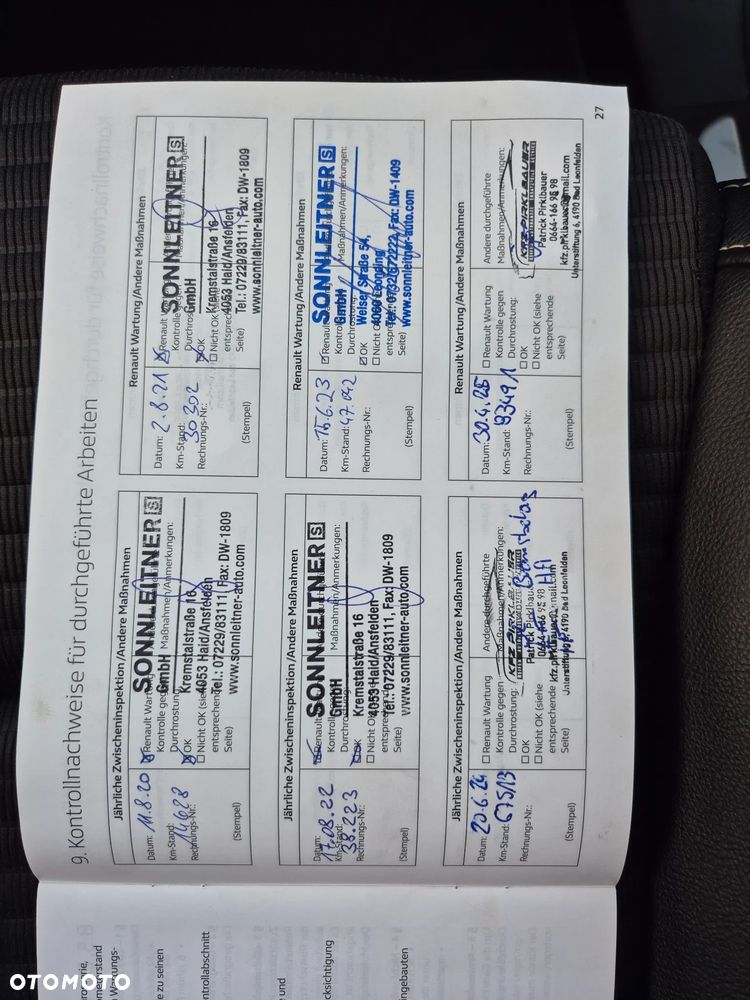 9. Kontrollnachweise für durchgeführte Arbeiten
Jährliche Zwischeninspektion/Andere Maßnahmen
Datum: 11.8.20
Km-Stand: 14628
Rechnungs-Nr.:
(Stempel)
Renault Wartung
Kontrolle gegen
Durchrostung:
OK
Nicht OK (siehe
entsprechende
Seite)
Maßnahmen/Anmerkungen:
SONNLEITNER S
GmbH
Kremstalstraße 16
4053 Haid/Ansfelden
Tel.: 07229/83111, Fax: DW-1809
www.sonnleitner-auto.com
Renault Wartung/Andere Maßnahmen
Datum: 2.8.21
Km-Stand:
30302
Rechnungs-Nr.:
(Stempel)
Renault
Kontrolle gegen
Durchrostung:
OK
Nicht OK
entsprechende
Seite)
Maßnahmen/Anmerkungen:
SONNLEITNER S
GmbH
Kremstalstraße 16
4053 Haid/Ansfelden
Tel.: 07229/83111, Fax: DW-1809
www.sonnleitner-auto.com
Jährliche Zwischeninspektion/Andere Maßnahmen
Datum:
17.08.22
Km-Stand:
38.223
Rechnungs-Nr.:
(Stempel)
Renault
Durchrostung:
OK
Nicht OK
entsprechende
Seite)
Maßnahmen/Anmerkungen:
SONNLEITNER S
GmbH
Kremstalstraße 16
4053 Haid/Ansfelden
Tel.: 07229/83111, Fax: DW-1809
www.sonnleitner-auto.com
Renault Wartung/Andere Maßnahmen
Datum: 15.6.23
Km-Stand: 47.042
Rechnungs-Nr.:
(Stempel)
Renault
Durchrostung:
OK
Nicht OK
entsprechende
Seite)
Maßnahmen/Anmerkungen:
SONNLEITNER S
GmbH
Welser Straße 54,
4060 Leonding
Fax: DW-1409
www.sonnleitner-auto.com
Jährliche Zwischeninspektion/Andere Maßnahmen
Datum: 20.6.24
Km-Stand: 67513
Rechnungs-Nr.:
(Stempel)
Renault Wartung
Kontrolle gegen
Durchrostung:
OK
Nicht OK (siehe
entsprechende
Seite)
Andere durchgeführte
Maßnahmen/Anmerkungen:
KFZ PIRKLBAUER
Patrick Pirklbauer
0664-166 98 98
4190 Bad Leonfelden
Renault Wartung/Andere Maßnahmen
Datum: 30.4.25
Km-Stand: 93491
Rechnungs-Nr.:
(Stempel)
Renault Wartung
Kontrolle gegen
Durchrostung:
OK
Nicht OK (siehe
entsprechende
Seite)
Andere durchgeführte
Maßnahmen/Anmerkungen:
KFZ PIRKLBAUER
Patrick Pirklbauer
0664-166 98 98
kfz.pirklbauer@gmail.com
Unterstiftung 6, 4190 Bad Leonfelden
27
e zu seinen
ntrollabschnitt
e und
cksichtigung
ingebauten
OTOMOTO